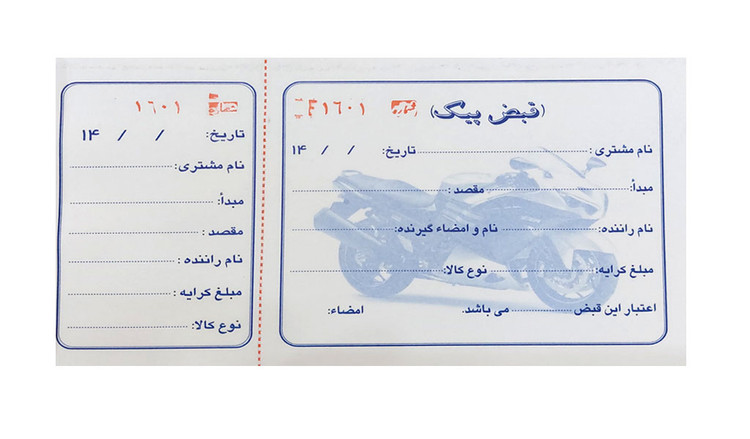 (قبض پیک) شماره ۱۶۰۱
نام مشتری: تاریخ: / / ۱۴
مبدأ: مقصد:
نام راننده: نام و امضاء گیرنده:
مبلغ کرایه: نوع کالا:
اعتبار این قبض می باشد. امضاء:
شماره ۱۶۰۱
تاریخ: / / ۱۴
نام مشتری:
مبدأ:
مقصد:
نام راننده:
مبلغ کرایه:
نوع کالا: